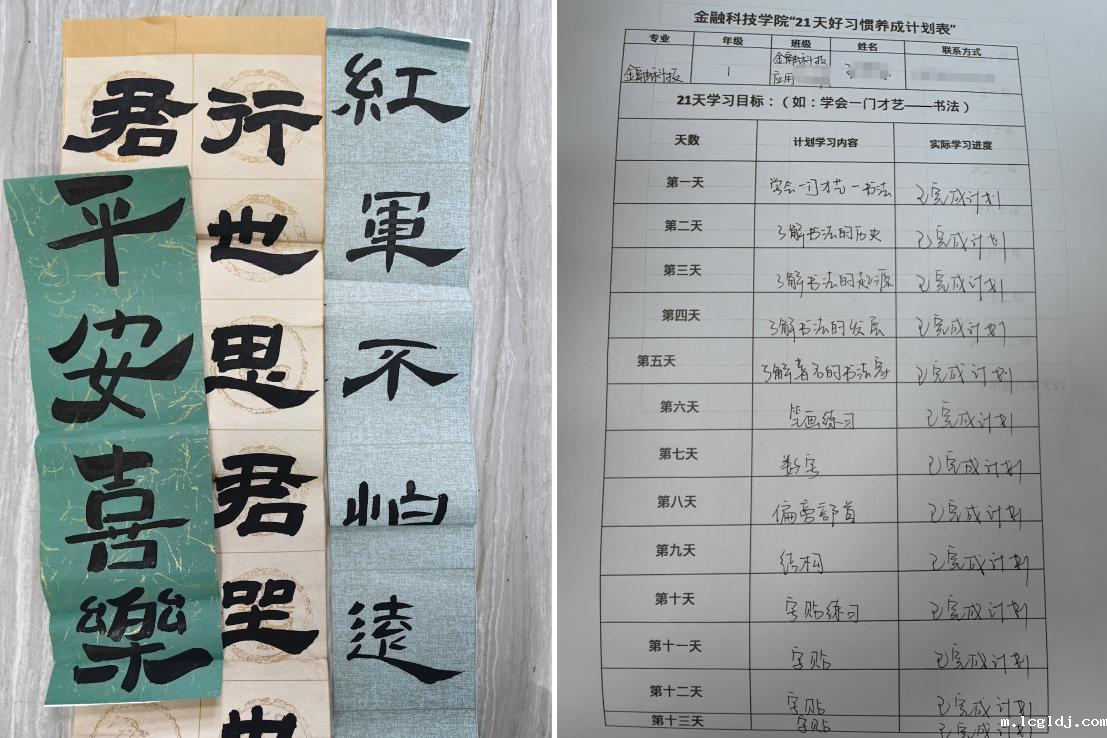 紅
軍
不
怕
遠
行
也
思
君
坐
也
君
平
安
喜
樂
金融科技学院“21天好习惯养成计划表”
专业 年级 班级 姓名 联系方式
金融科技 1 金融科技应用
21天学习目标：（如：学会一门才艺——书法）
天数 计划学习内容 实际学习进度
第一天 学会一门才艺-书法 已完成计划
第二天 了解书法的历史 已完成计划
第三天 了解书法的起源 已完成计划
第四天 了解书法的发展 已完成计划
第五天 了解著名的书法家 已完成计划
第六天 笔画练习 已完成计划
第七天 数字 已完成计划
第八天 偏旁部首 已完成计划
第九天 结构 已完成计划
第十天 字贴练习 已完成计划
第十一天 字贴 已完成计划
第十二天 字贴 已完成计划
第十三天 字贴 已完成计划
m.lcgldj.com